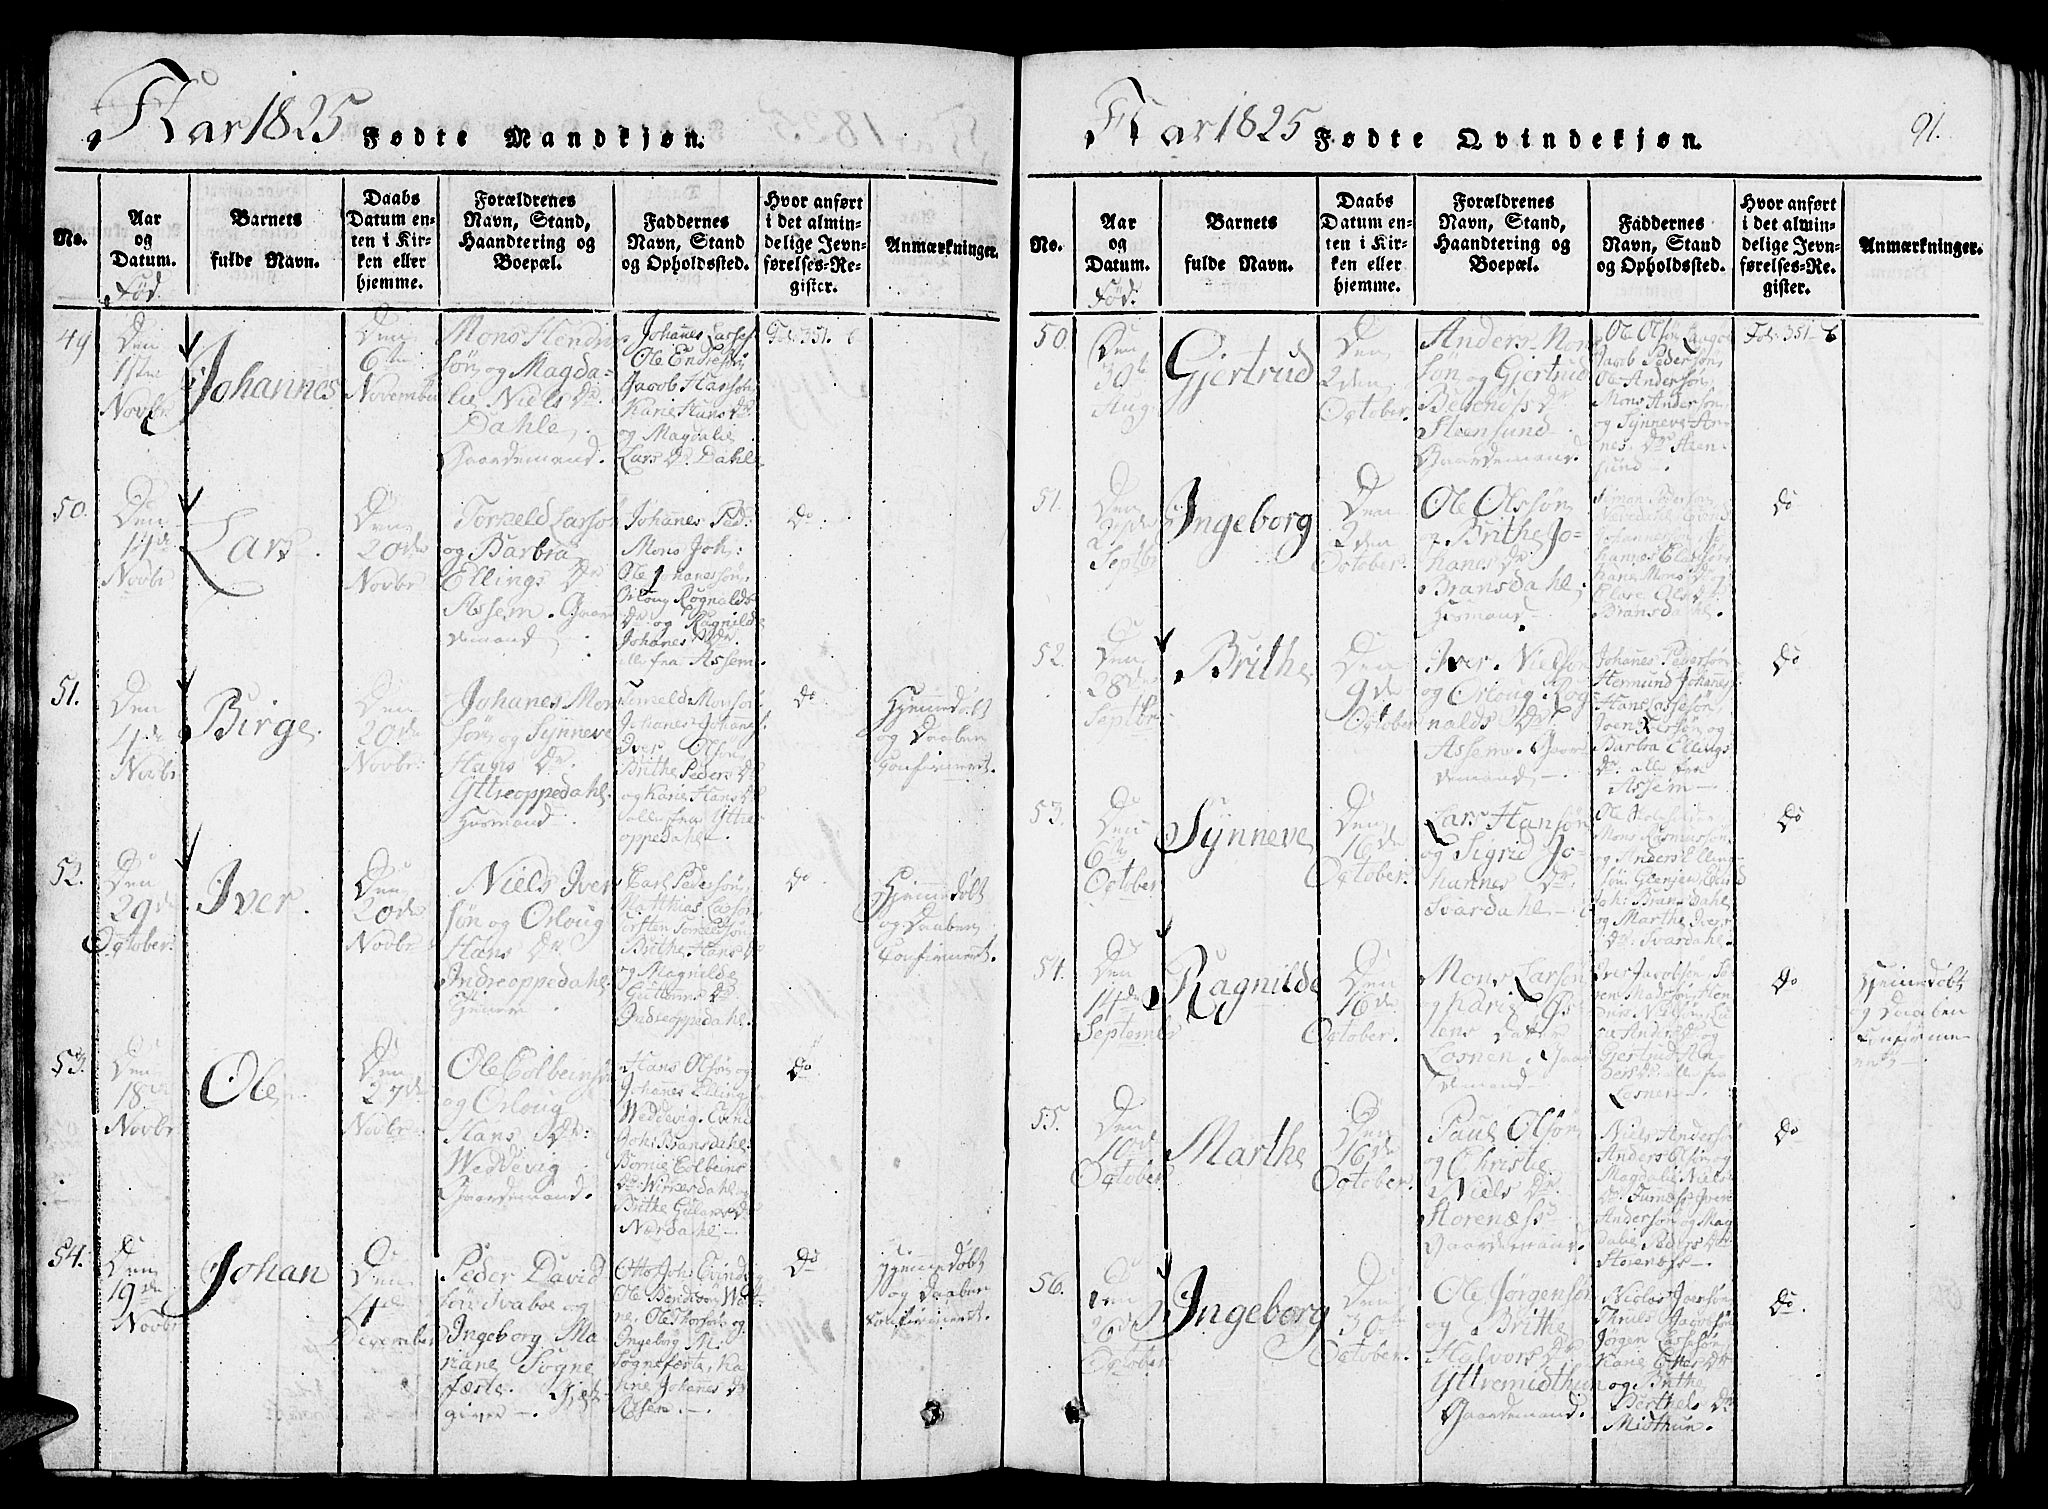 Aar 1825 Fødte Mandkjøn.
No.
Aar
og
Datum.
Fød.
Barnets
fulde Navn.
Daabs
Datum en-
ten i Kir-
ken eller
hjemme.
Forældrenes
Navn, Stand,
Haandtering og
Boepæl.
Faddernes
Navn, Stand
og Opholdssted.
Hvor anført
i det almin-
delige Jevn-
førelses-Re-
gister.
Anmærkninger.
49
Den
1ste
Novbr
Johannes
Den
6te
November
Mons Hendrik
søn og Magda-
le Niels Dr.
Dahle
Gaardemand.
Johanes Larsen
Ole Endresøn
Jacob Hansøn
Karie Hans Dr
og Magdalie
Lars Dr. Dahle
Fol. 351.
50.
Den
14de
Novbr
Lars
Den
20de
Novbr
Torkeld Larsø
og Barbra
Ellings Dr
Assem. Gaar
demand
Johanes Ped:
Mons Joh:
Ole Johanessøn
Orloug Rognalds
Dr. og Ragnilde
Johanes Dr.
alle fra Assem.
do
51.
Den
4de
Novbr
Birge
Den
20de
Novbr:
Johanes Mon
søn og Synneve
Hans Dr.
Yttreoppedahl.
Husmand
Monsøn
Johanes Johanes
Iver Olsøn
Brithe Peders Dr
og Karie Hans Dr
alle fra Yttre
oppedahl.
do
Hjemmedøbt
og Daaben
Confirmert.
52.
Den
29de
October:
Iver.
Den
20de
Novbr
Niels Iver
søn og Orloug
Hans Dr
Indreoppedahl.
Carl Pedersøn
Matthias Larsøn
Torsten
Brithe Hans Dr
og Magnilde
Guttorms Dr
Indreoppedahl.
do
Hjemmedøbt
og Daaben
Confirmert.
53.
Den
18de
Novbr
Ole
Den
27de
Novbr
Ole Colbeinsø
og Orloug
Hans Dr:
Weddevig
Gaardemand.
Hans Olsøn og
Johanes Elling
Weddevig.
Joh: Bransdahl
Colbeins
Dr. Wirkesdahl og
Brithe
Nærdahl.
do
54.
Den
19de
Novbr
Johan
Den
4de
December
Peder David
søn Svaboe og
Ingeborg Ma
riane Sogne
fæste. Giæst-
giver.
Otto Joh:
Ole Bendixen
Ole Thorsøn og
Ingeborg M.
Sognefæste, Ka
trine Johanes Dr
Risem.
do
Hjemmedøbt
og Daaben
Confirmert.
Aar 1825 Fødte Qvindekjøn. 91.
No.
Aar
og
Datum.
Fød:
Barnets
fulde Navn.
Daabs
Datum en-
ten i Kir-
ken eller
hjemme.
Forældrenes
Navn, Stand,
Haandtering og
Boepæl.
Faddernes
Navn, Stand
og Opholdssted.
Hvor anført
i det almin-
delige Jevn-
førelses-Re.
gister.
Anmærkninger.
50.
Den
30te
Aug.
Gjertrud
Den
2den
October.
Anders Mons
søn og Gjertrud
Dr
Steensund
Gaardemand.
Ole Olsøn
Jacob Pedersøn,
Ole Andersøn
Mons Andersøn
og Synneve
Dr Steen-
sund.
Fol: 351
51.
Den
Septbr
Ingeborg
Den
2den
October.
Ole Olssøn
og Brithe Jo-
hanes Dr
Bransdahl,
Husmand
Simon Pedersøn
Mons Dr og
Ols Dr
Bransdahl.
do
52.
Den
28de
Septbr.
Brithe
Den
9de
October
Iver Nielsøn
og Orloug Rog
nalds Dr
Assem. Gaar
demand.
Johanes Pedersøn
Hermund Johanes
Hans Lassesøn
Joen Iversøn og
Barbra Ellings
Dr. alle fra
Assem
do
53.
Den
6te
October
Synneve
Den
16de
October.
Lars Hansøn
og Sigrid Jo-
hannes Dr.
Svardahl.
Ole
Mons Rasmussøn
og Anders Elling-
søn
Joh: Bransdahl
og Marthe Ivers
Dr. Svardahl.
do
54.
Den
14de
September
Ragnilde
Den
16de
October.
Mons Larsøn
og Karie
datter
Losnen. Gaar
demand
Iver Jacobsøn
Madsøn
Nielsøn
Anders Dr og
Gjertrud An-
ders Dr. alle fra
Losnen.
do
Hjemmedøbt
og Daaben
Confirme-
ret.
55.
Den
10de
October
Marthe
Den
16de
October.
Paul Olsøn
og Christe
Niels Dr.
Storenæss
Gaardemand.
Niels Andersøn
Anders Olsøn og
Magdalie Niels
Dr. Furnæss
Andersøn og Mag
dalie Peders Dr
Storenæss.
do
56.
Den
26de
October
Ingeborg
Den
30te
October.
Ole Jørgensøn
og Brithe
Halvors Dr
Yttremidthun
Gaardemand.
Nicolas Joersøn
Jacobsøn
Jørgen Larssøn
Karie Ottes Dr
og Brithe
Berthel Dr
Midthun.
do.